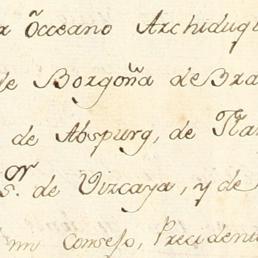 r Õcceano Archiduq
de Borgoña de Bra
de Abspurg, de Flan
S.or de Vizcaya, y de
mi Consejo, Precident